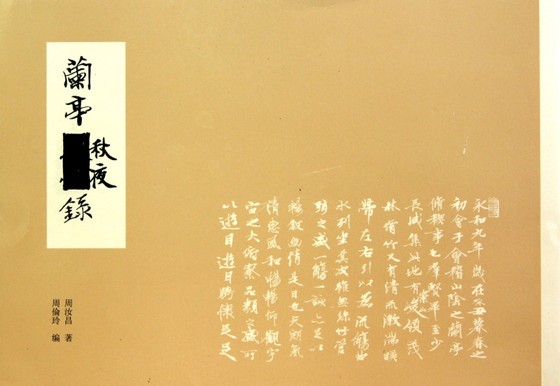 蘭亭
秋夜
錄
周汝昌 著
周倫玲 编
永和九年歲在癸丑暮春之
初會于會稽山陰之蘭亭
脩稧事也羣賢畢至少
長咸集此地有峻領茂
林脩竹又有清流激湍暎
帶左右引以為流觴曲
水列坐其次雖無絲竹管
弦之盛一觴一詠亦足以
暢叙幽情是日也天朗氣
清惠風和暢仰觀宇
宙之大俯察品類之盛所
以遊目遊目騁懷足足